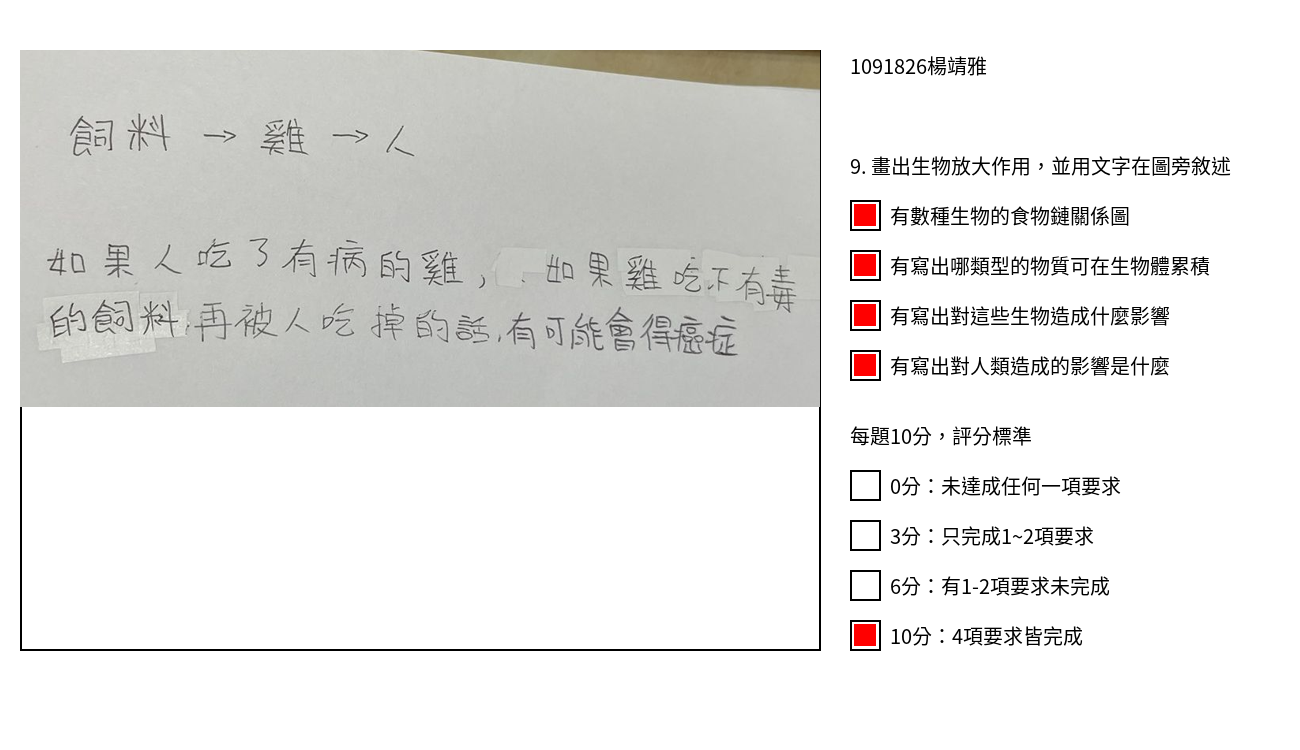 飼料 → 雞 → 人
如果人吃了有病的雞, 如果雞吃不有毒
的飼料,再被人吃掉的話,有可能會得癌症
1091826楊靖雅
9. 畫出生物放大作用，並用文字在圖旁敘述
有數種生物的食物鏈關係圖
有寫出哪類型的物質可在生物體累積
有寫出對這些生物造成什麼影響
有寫出對人類造成的影響是什麼
每題10分，評分標準
0分：未達成任何一項要求
3分：只完成1~2項要求
6分：有1-2項要求未完成
10分：4項要求皆完成